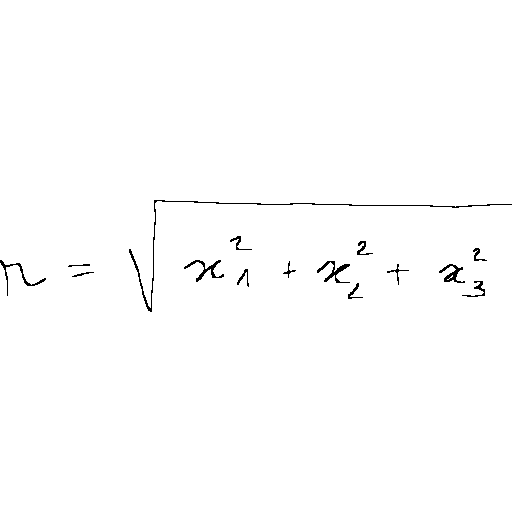 r = \sqrt{x_1^2 + x_2^2 + x_3^2}